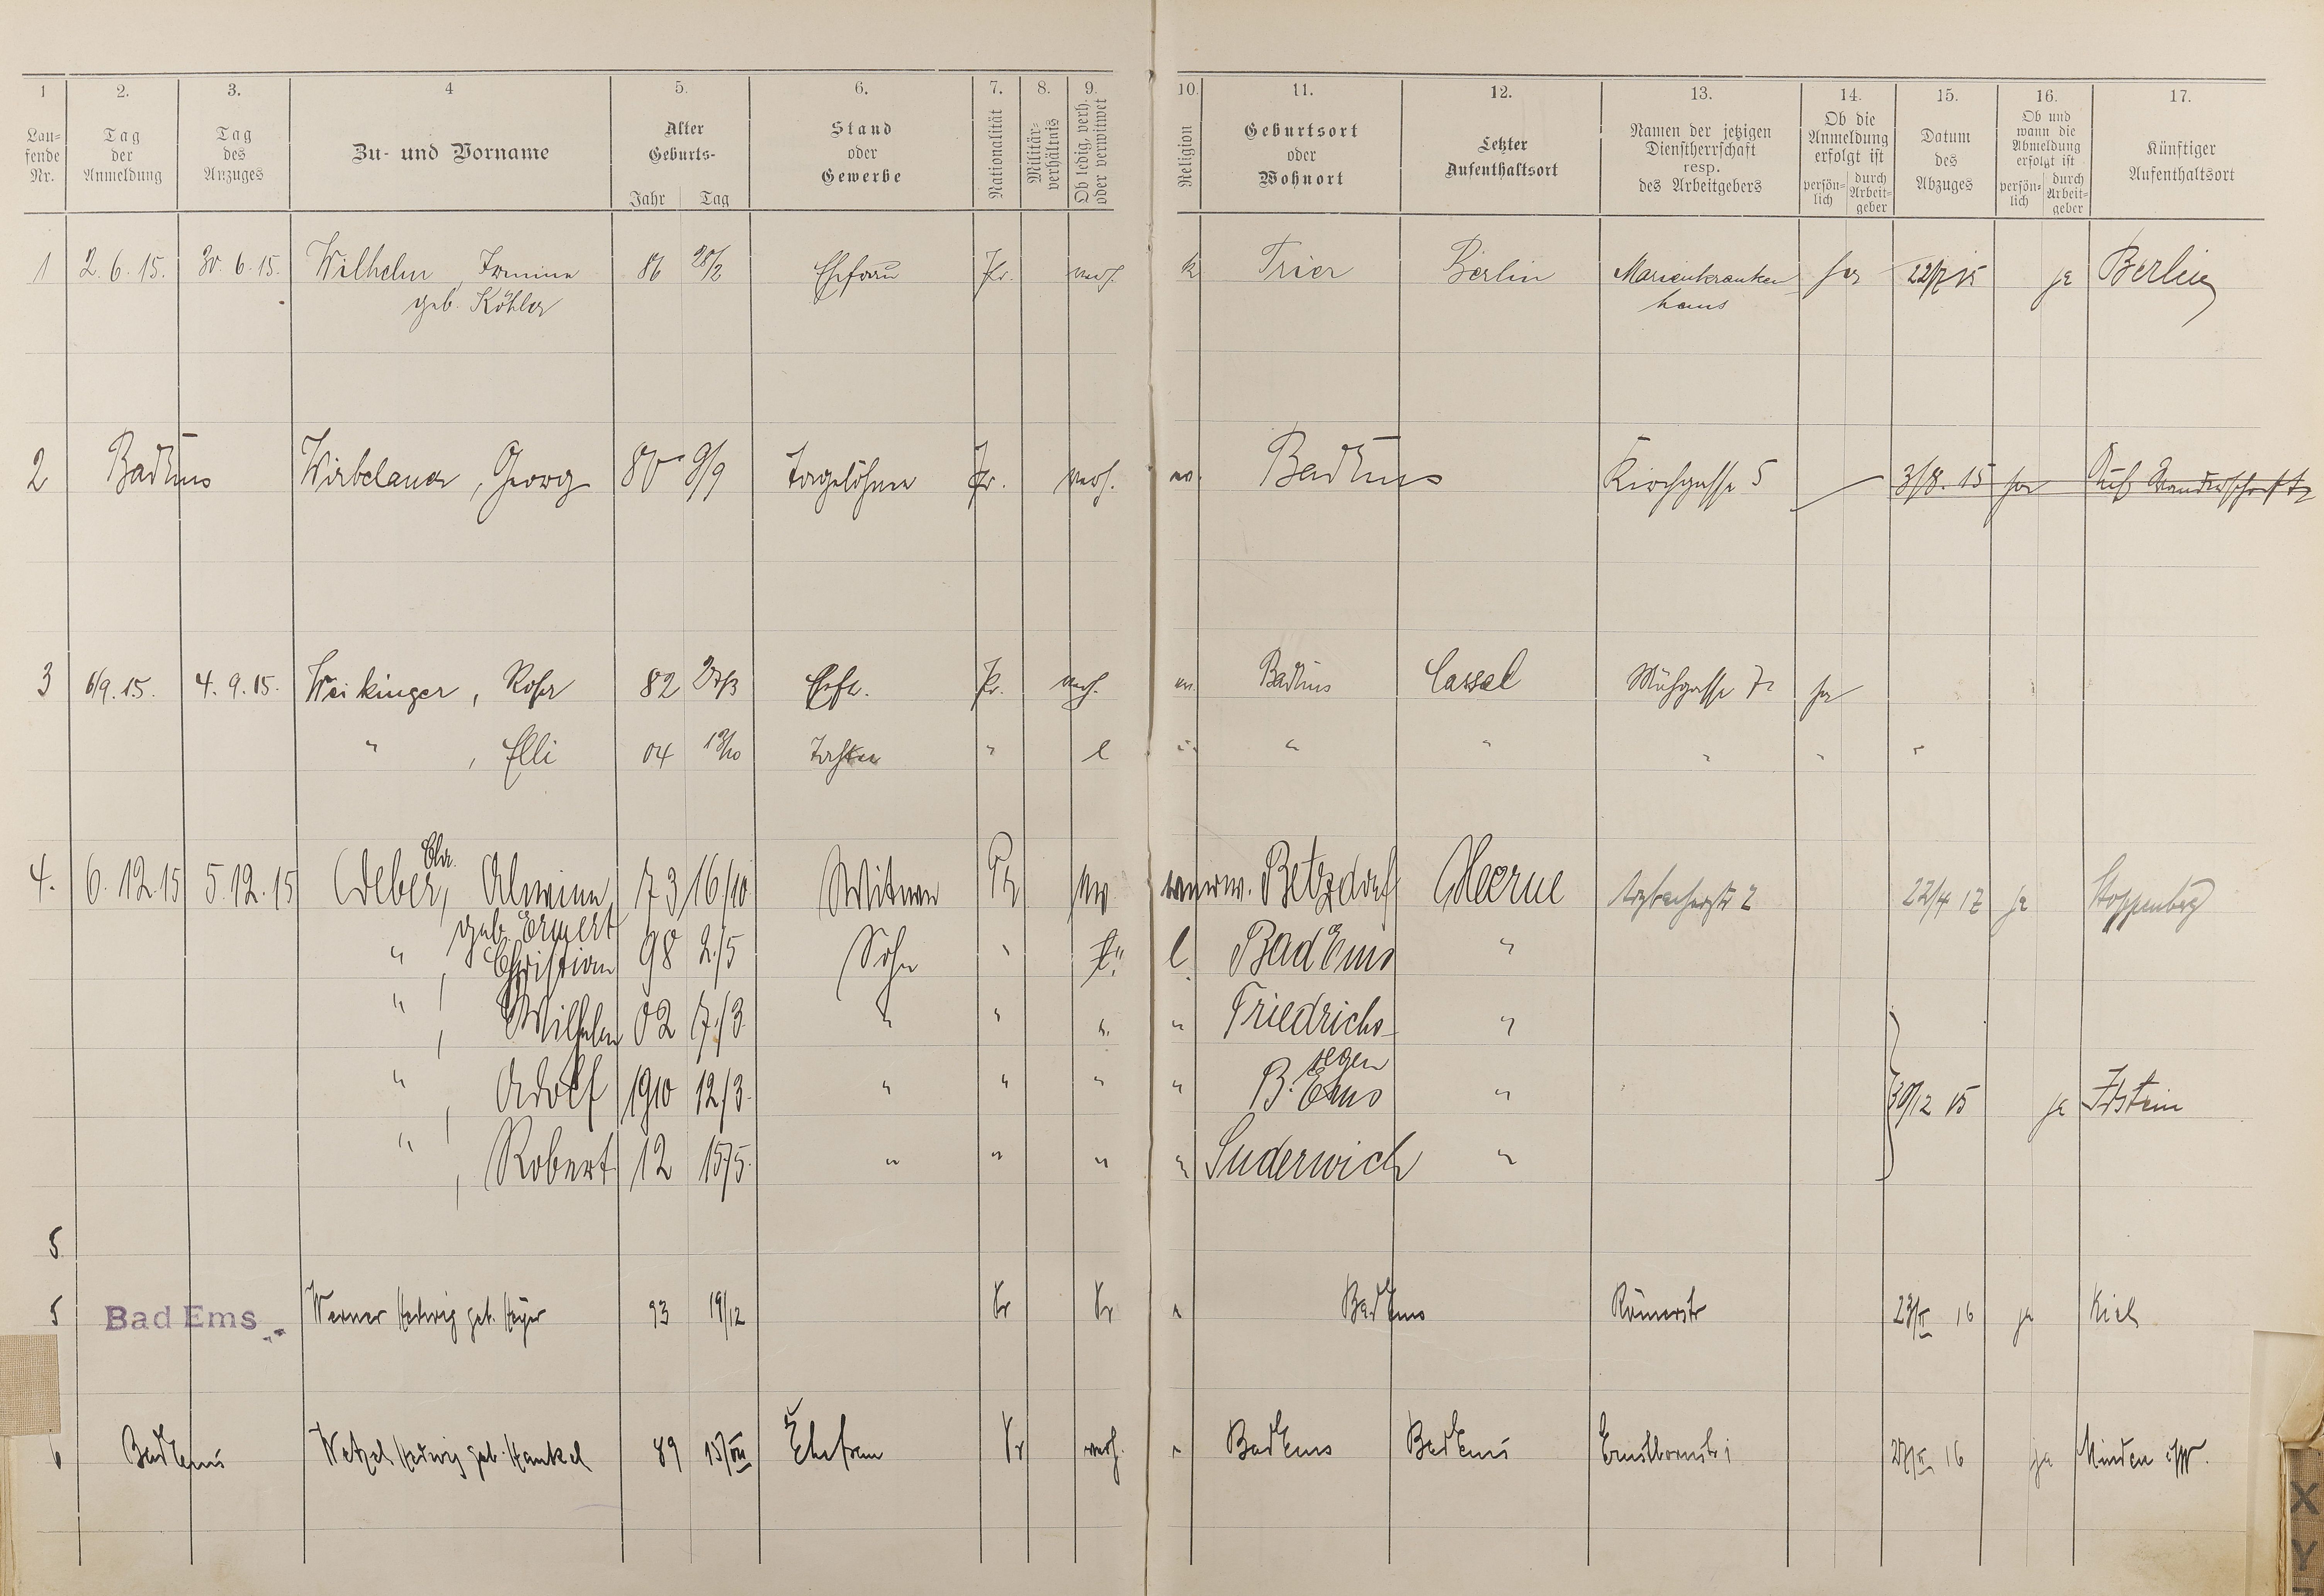 1 2. 3. 4 5. 6. 7. 8. 9. 10. 11. 12. 13. 14. 15. 16. 17.
Lau-
fende
Nr.
Tag
der
Anmeldung
Tag
des
Anzuges
Zu- und Vorname
Alter
Geburts-
Jahr Tag
Stand
oder
Gewerbe
Nationalität
Militär-
verhältnis
Ob ledig, verh.
oder verwitwet
Religion
Geburtsort
oder
Wohnort
Letzter
Aufenthaltsort
Namen der jetzigen
Dienstherrschaft
resp.
des Arbeitgebers
Ob die
Anmeldung
erfolgt ist
persön-
lich
durch
Arbeit-
geber
Datum
des
Abzuges
Ob und
wann die
Abmeldung
erfolgt ist
persön-
lich
durch
Arbeit-
geber
Künftiger
Aufenthaltsort
1 2. 6. 15. 30. 6. 15. Wilhelm, Irmina 86 28/2 Ehefrau Pr. verh. k Trier Berlin Marienkranken ja 22/7 15 ja Berlin
geb. Köhler haus
2 Bad Ems Wirbelauer, Georg 80 9/9 Tagelöhner Pr. verh. ev. Bad Ems Kirchgasse 5 3/8. 15 ja Auf Wanderschaft
3 6/9. 15. 4. 9. 15. Weikinger, Rosa 82 Ehefr. Pr. verh. ev. Bad Ems Cassel ja
" , Elli 04 13/10 Tochter " l " " " " " "
4. 6. 12. 15 5. 12. 15 Weber, Alwine 73 16/10 Witwe Pr Betzdorf Herne 22/4 17 ja Stoppenberg
geb. Ermert
" , Christian 98 2./5 Sohn " l Bad Ems "
" , Wilhelm 02 7./3. " " " " Friedrichs- "
segen
" , Adolf 1910 12/3. " " " " B. Ems " 30/12 15 ja Idstein
" , Robert 12 15/5. " " " " Suderwich "
5
5 Bad Ems Werner Hedwig geb. 93 19/12 Pr Bad Ems Römerstr 16 ja Kiel
6 Bad Ems Wetzel Hedwig geb. Hankel 89 15/VII Ehefrau Pr verh. Bad Ems Bad Ems 16 ja Minden
X
Y